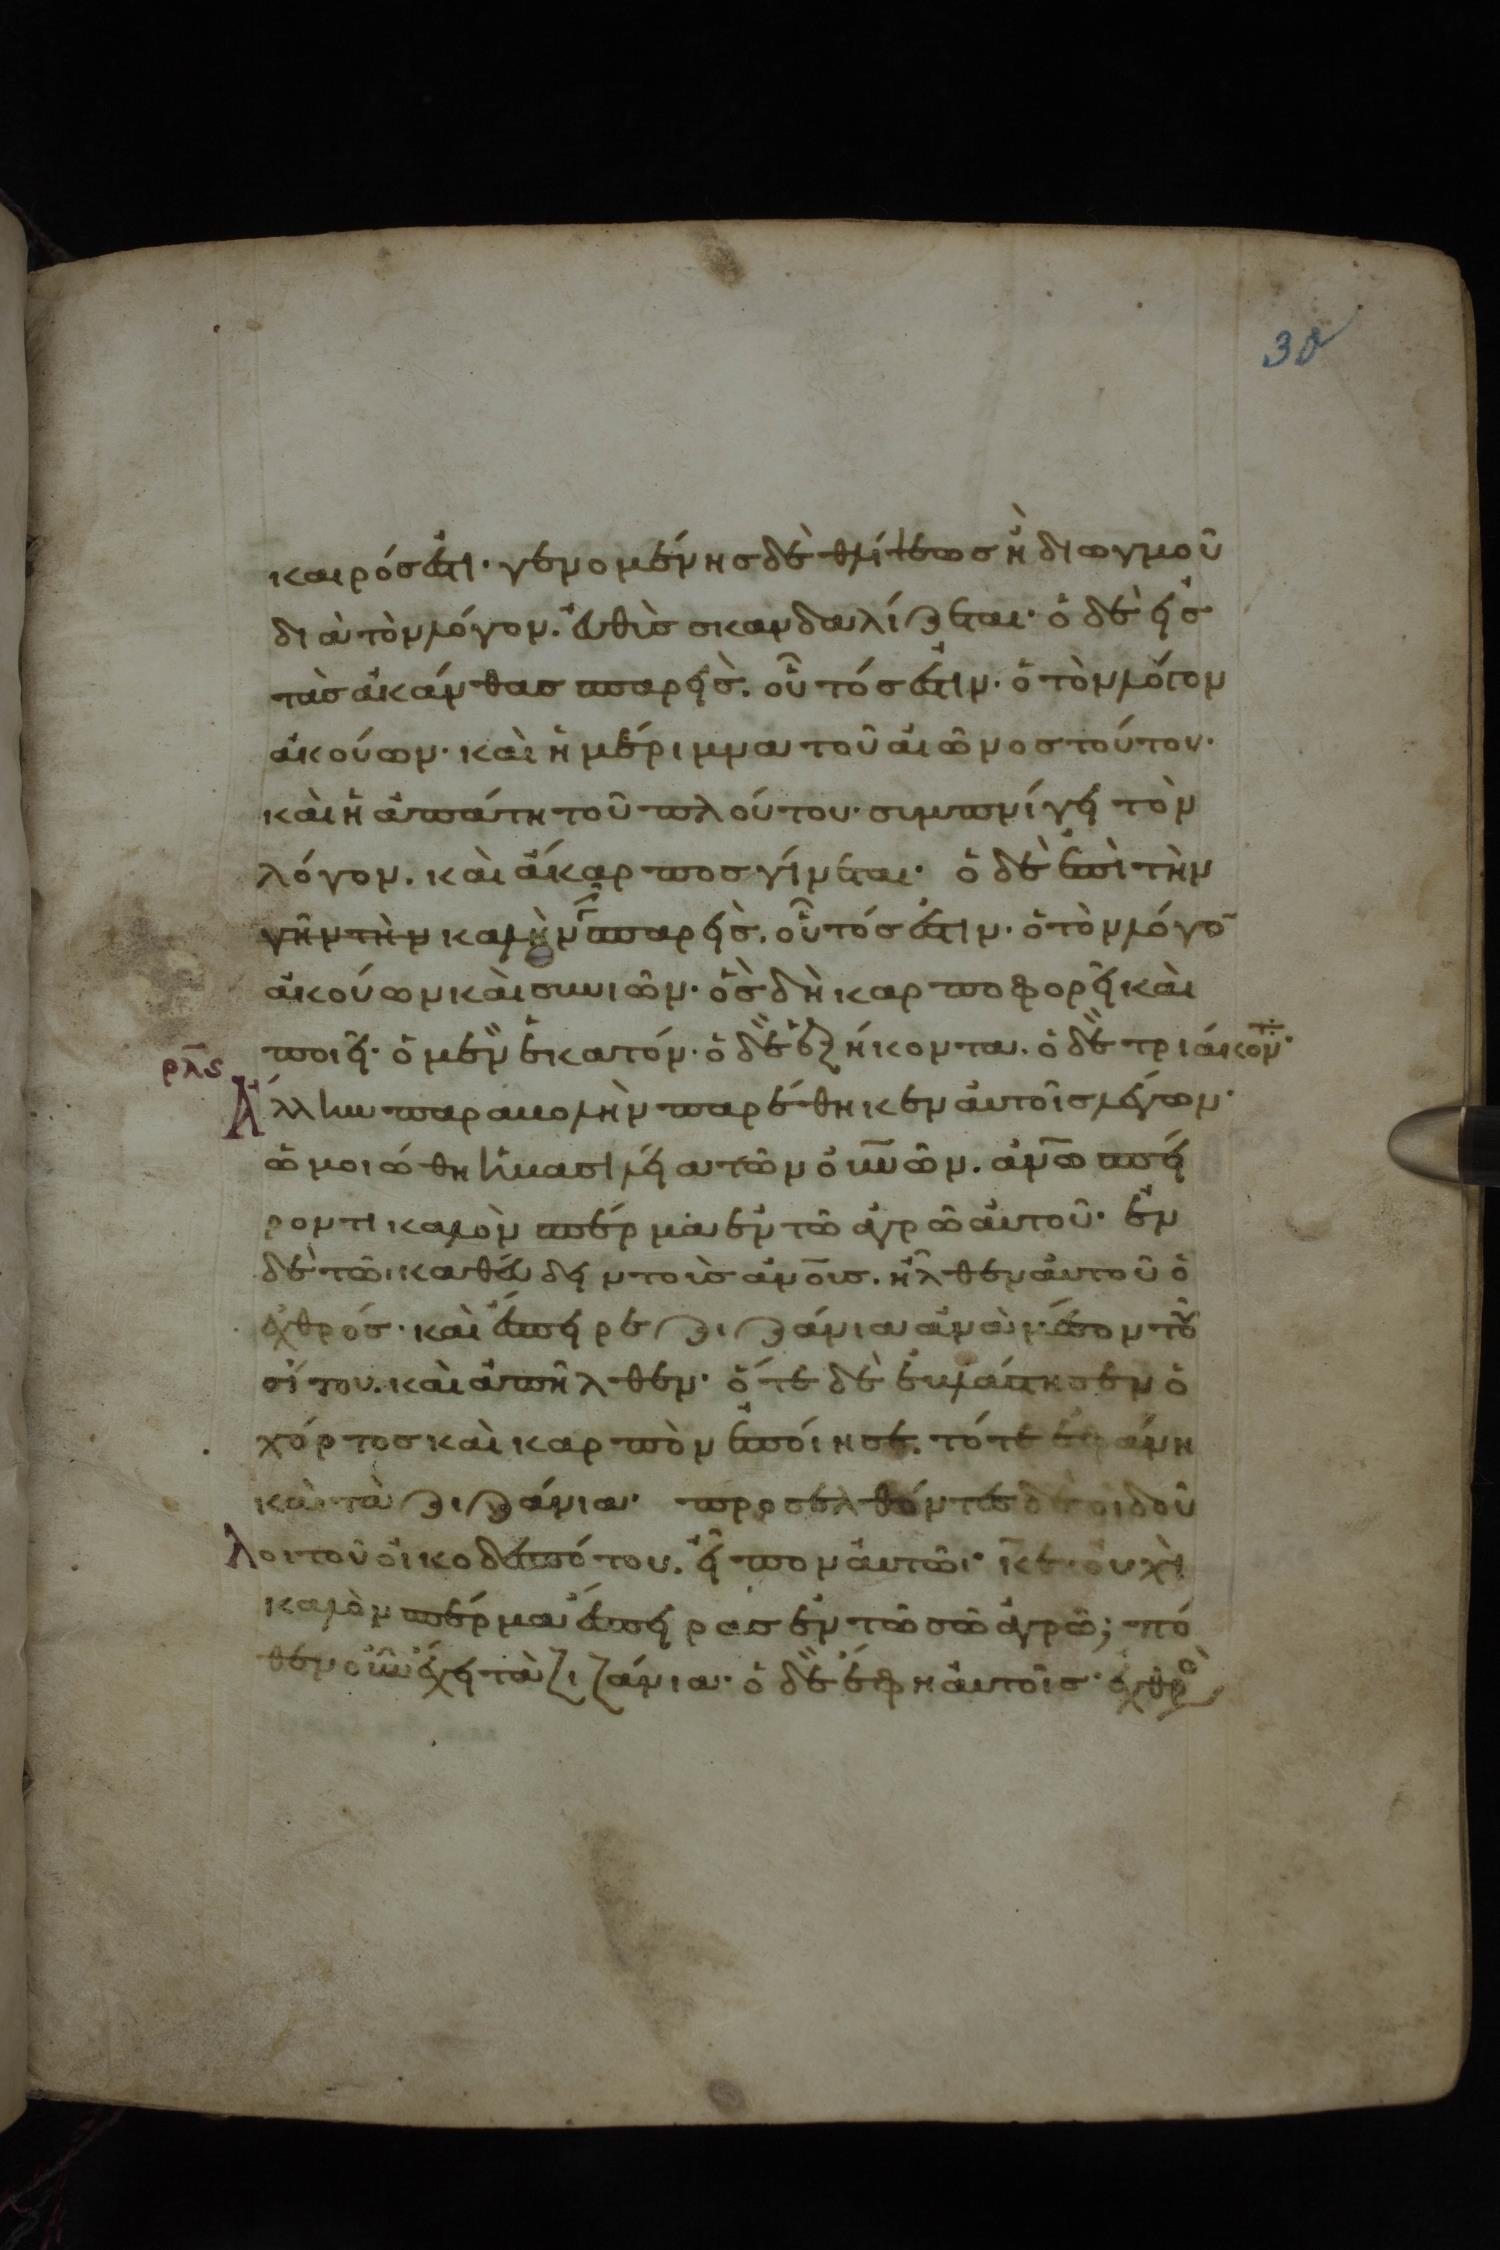 30
καιρός ἐστι· γενομένης δὲ θλίψεως ἢ διωγμοῦ
διὰ τὸν λόγον. εὐθὺς σκανδαλίζεται· ὁ δὲ εἰς
τὰς ἀκάνθας σπαρεὶς. οὗτός ἐστιν· ὁ τὸν λόγον
ἀκούων· καὶ ἡ μέριμνα τοῦ αἰῶνος τούτου·
καὶ ἡ ἀπάτη τοῦ πλούτου· συμπνίγει τὸν
λόγον. καὶ ἄκαρπος γίνεται· ὁ δὲ ἐπὶ τὴν
γῆν τὴν καλὴν σπαρεὶς. οὗτός ἐστιν· ὁ τὸν λόγο̄
ἀκούων καὶ συνιῶν· ὃς δὴ καρποφορεῖ καὶ
ποιεῖ· ὁ μὲν ἑκατόν· ὁ δὲ ἑξήκοντα. ὁ δὲ τριάκον·
ρλς
Ἄλλην παραβολὴν παρέθηκεν αὐτοῖς λέγων·
ὡμοιώθη ἡ βασιλεία τῶν οὐνῶν. ἀνω σπεί
ροντι καλὸν σπέρμα ἐν τῶ ἀγρῶ αὐτοῦ· ἐν
δὲ τῶι καθεύδειν τοὺς ἀνους. ἦλθεν αὐτοῦ ὁ
ἐχθρός· καὶ ἔσπειρε ζιζάνια ἀνὰ μέσον τοῦ
σίτου. καὶ ἀπῆλθεν· ὅτε δὲ ἐβλάστησεν ὁ
χόρτος καὶ καρπὸν ἐποίησε. τότε ἐφάνη
καὶ τὰ ζιζάνια· προσελθόντες δὲ οἱ δοῦ
λοι τοῦ οἰκοδεσπότου. εἶπον αὐτῶι· κε· οὐχὶ
καλὸν σπέρμα ἔσπειρας ἐν τῶ σῶ ἀγρῶ; πό
θεν οὖν ἔχει τὰ ζιζάνια· ὁ δὲ ἔφη αὐτοῖς· ἐχθρὸ